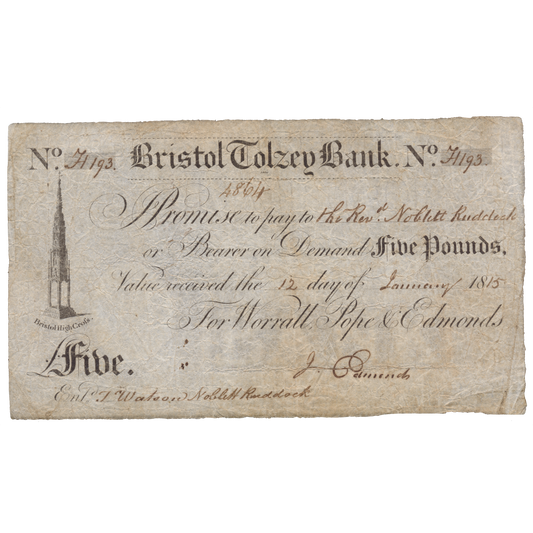 No. H193. Bristol Tolzey Bank. No. H193.
4864
I Promise to pay to the Revd. Noblett Ruddock
or Bearer on Demand Five Pounds,
Value received the 12 day of January 1815
Bristol High Cross.
For Worrall, Pope & Edmonds
£Five.
J. Edmonds
Entd. T Watson Noblett Ruddock